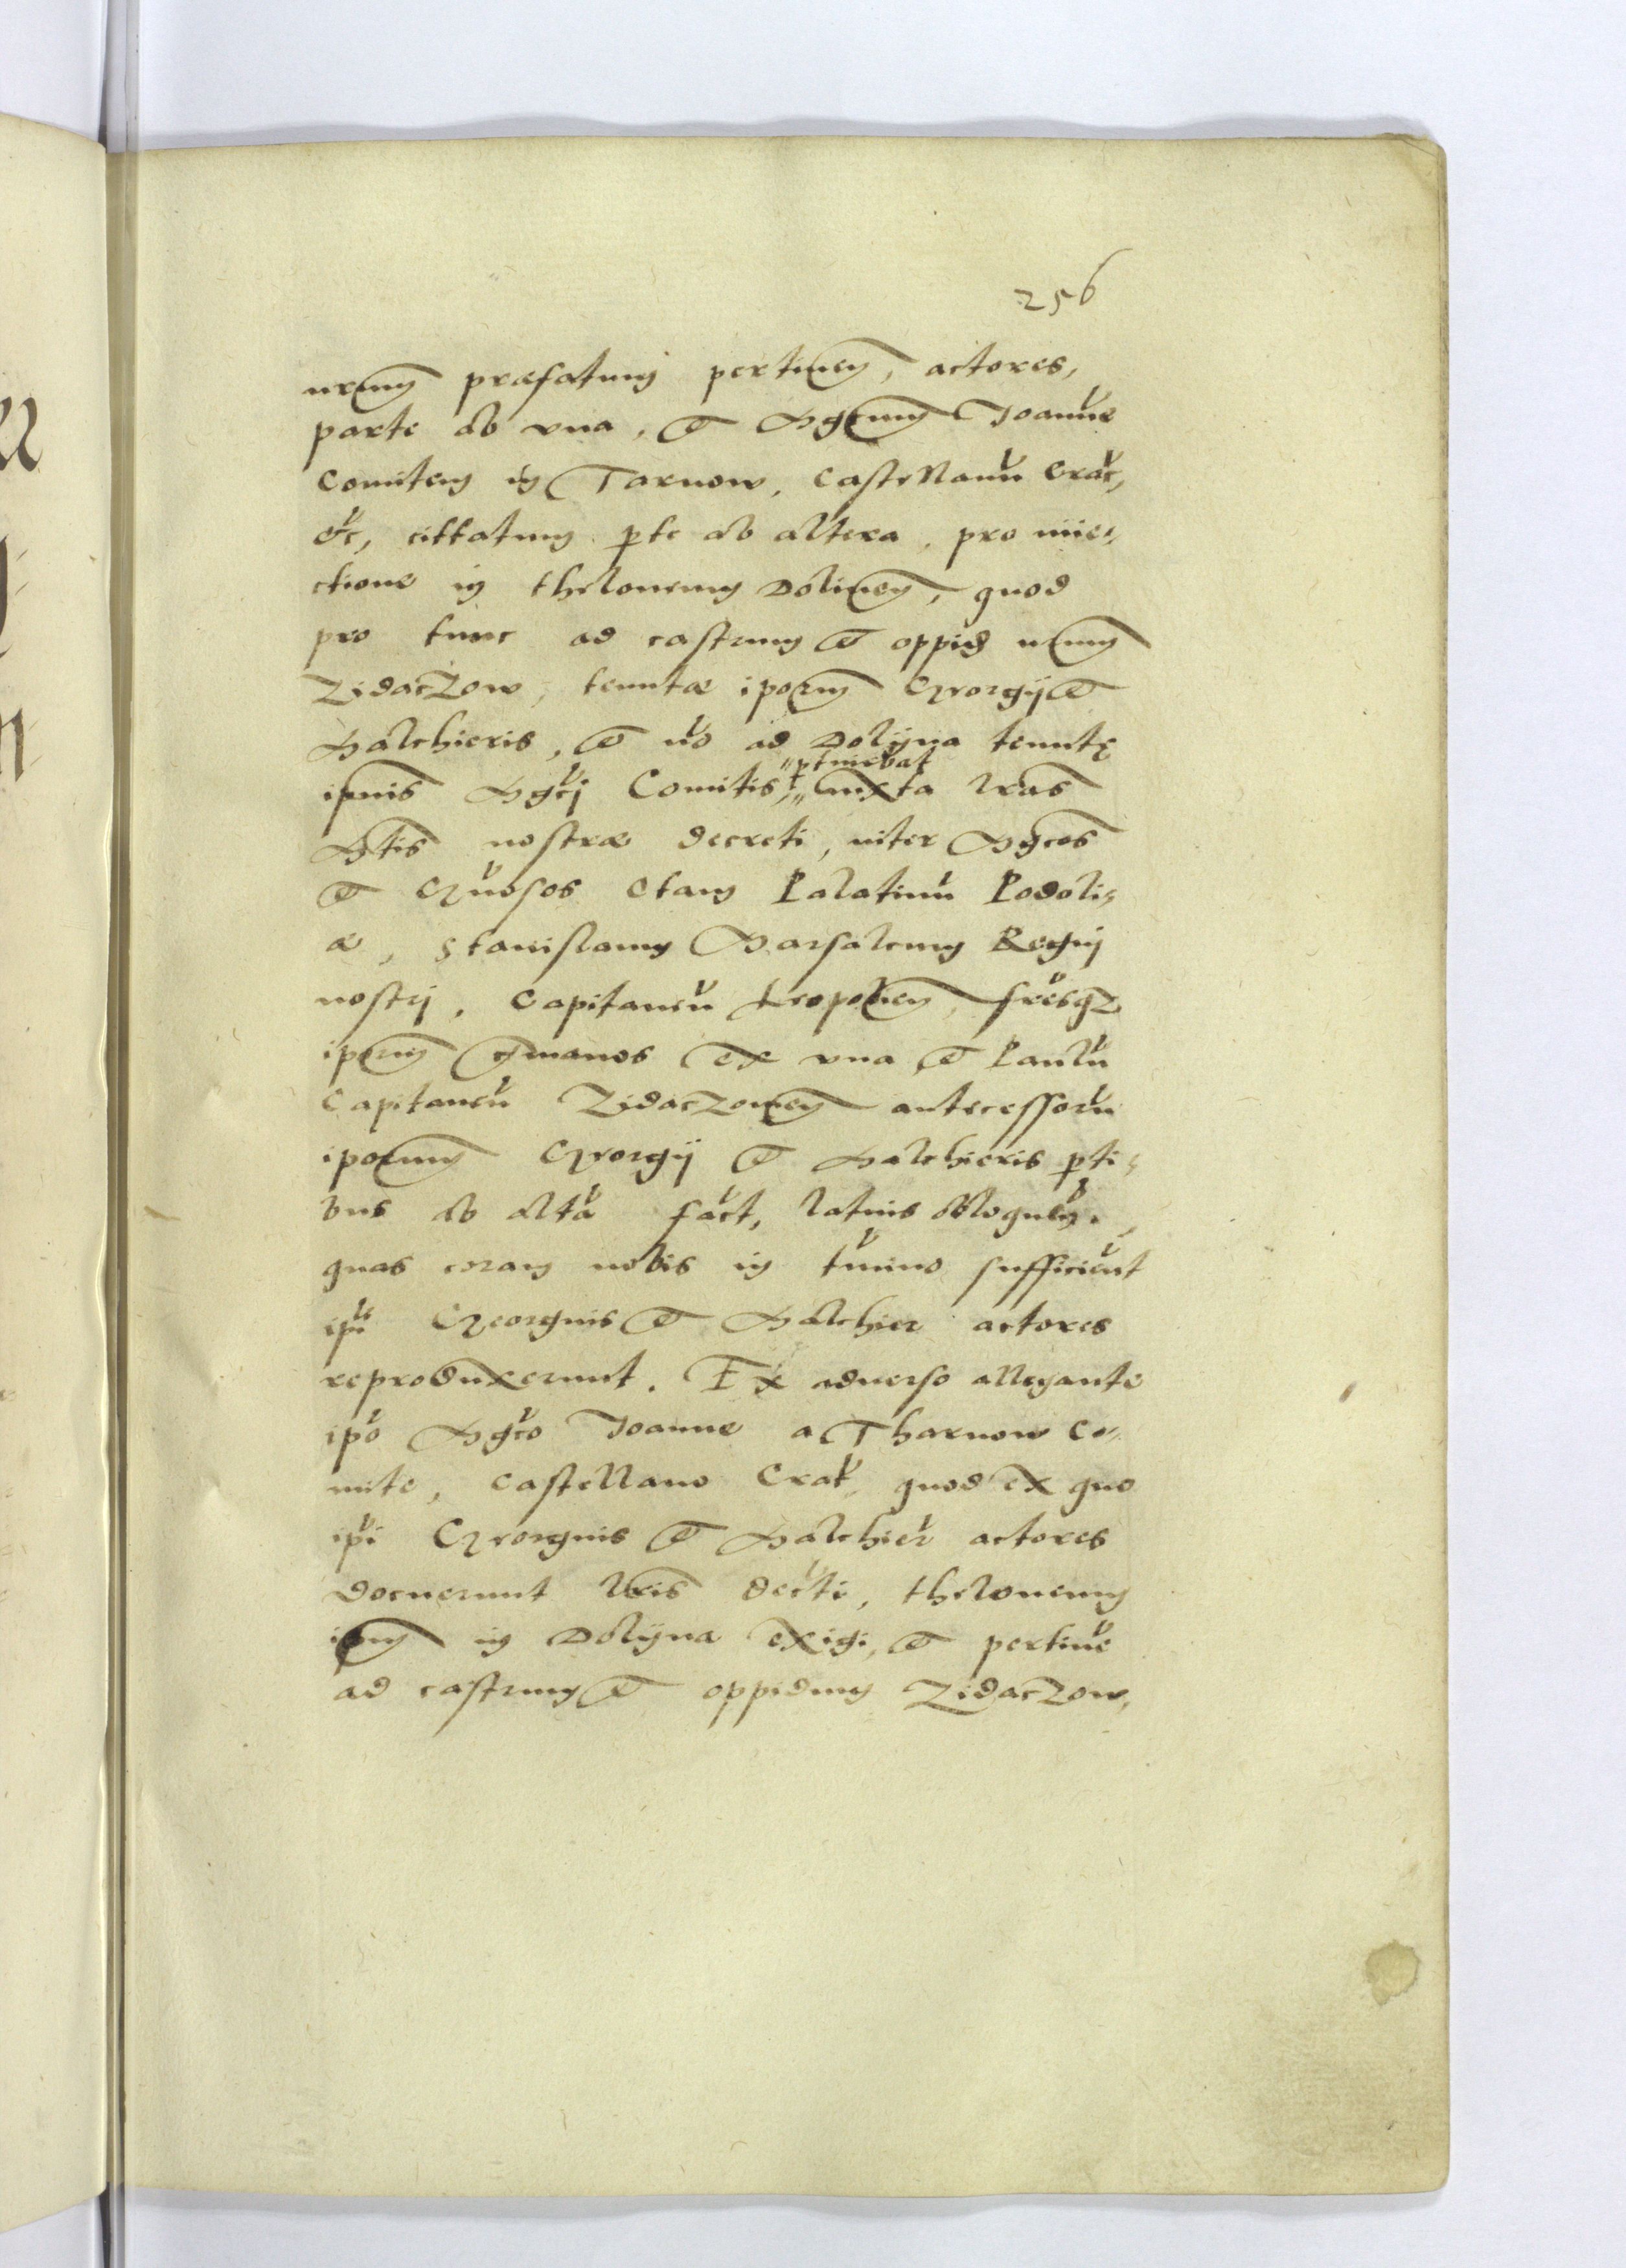 256
nrum præfatum pertinen, actores,
parte ab vna, et Mgcum Joanne
Comitem in Tarnow, Castellanu Crac,
etc, cittatum pte ab altera, pro inie,,
ctione in theloneum Dolinen, quod
pro tunc ad castrum et oppid nrum
Zidaczow, tenutæ iporum Georgij et
Balchieris, et no ad Dolyna tenutę
ipius Mgci Comitis, ptinebat Iuxta lras
Mtis nostræ decreti, inter Mgcos
et Gnosos Otam Palatinu Podoli,
æ, Stanislaum Marsalcum Regnj
nostrj, Capitaneu Leopolien, fresqz
iporum germanos ex vna et Paulu
Capitaneu Zidaczowien antecessoru
iporum Georgij et Balchieris pti,
bus ab alta fact, latius obloquen.
quas coram nobis in tmino sufficient
ipi Georgius et Balchier actores
reproduxerunt. Ex aduerso allegante
ipo Mgco Joanne a Tharnow Co,,
mite, Castellano Crac, quod ex quo
ipi Georgius et Balchier actores
docuerunt lris decti, theloneum
ipm in Dolyna exigi, et pertine
ad castrum et oppidum Zidaczow,